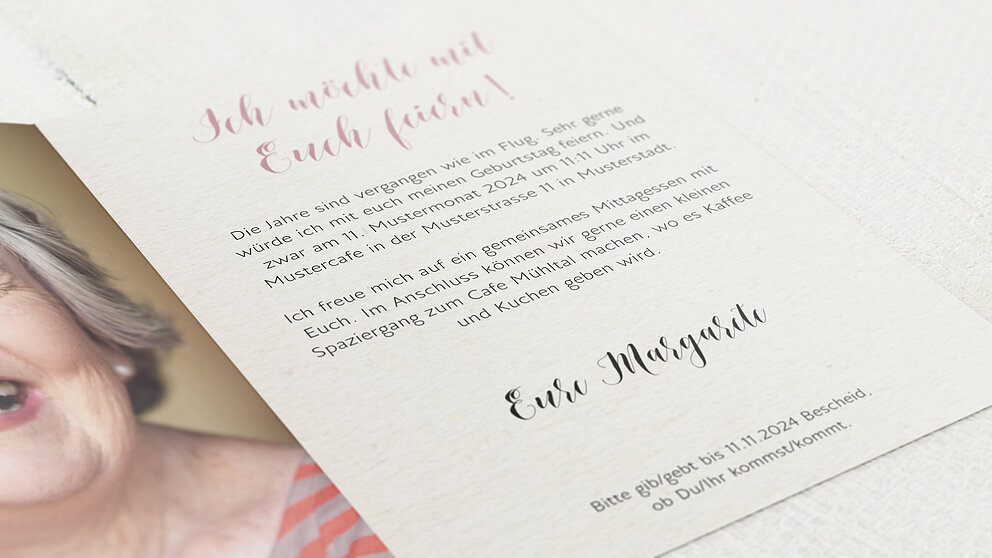 Ich möchte mit
Euch feiern!
Die Jahre sind vergangen wie im Flug. Sehr gerne
würde ich mit euch meinen Geburtstag feiern. Und
zwar am 11. Mustermonat 2024 um 11:11 Uhr im
Mustercafe in der Musterstrasse 11 in Musterstadt.
Ich freue mich auf ein gemeinsames Mittagessen mit
Euch. Im Anschluss können wir gerne einen kleinen
Spaziergang zum Cafe Mühltal machen, wo es Kaffee
und Kuchen geben wird.
Eure Margarete
Bitte gib/gebt bis 11.11.2024 Bescheid,
ob Du/Ihr kommst/kommt.